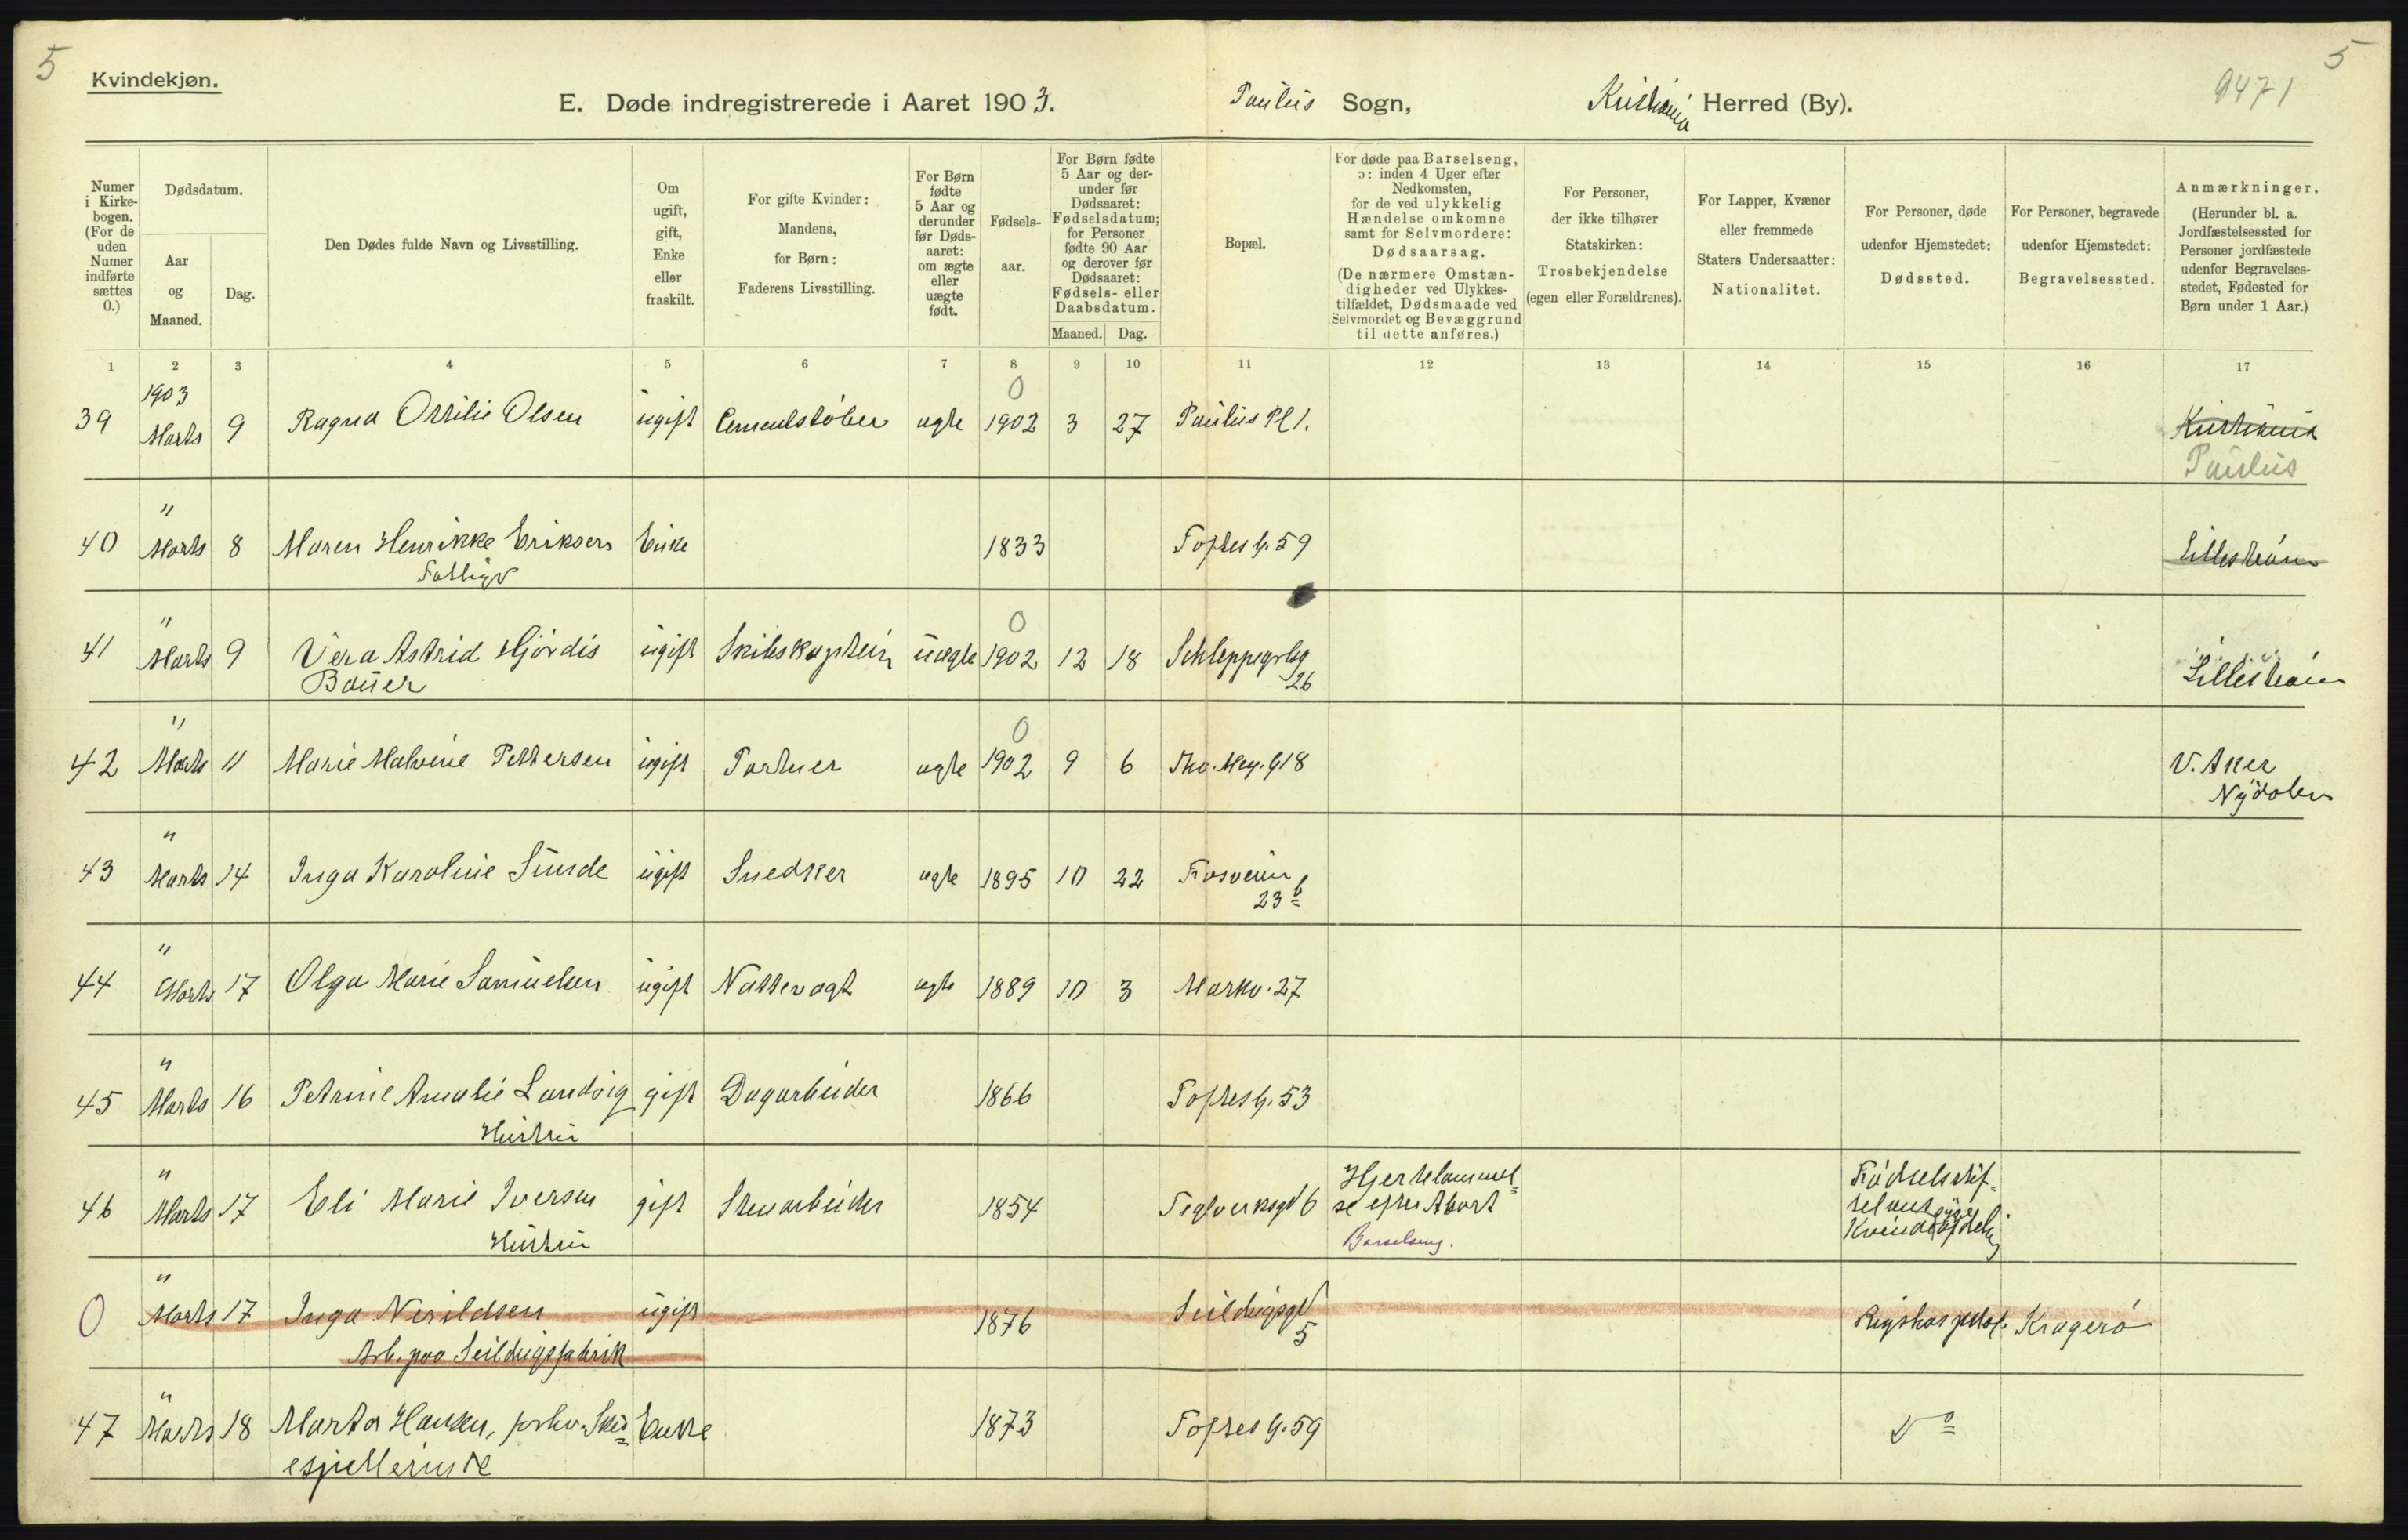 5
5
Kvindekjøn.
9471
E. Døde indregistrerede i Aaret 1903. Paulus Sogn, Kristiania Herred (By).
Numer i Kirke-bogen. (For de uden Numer indførte sættes 0.)
Dødsdatum.
Aar og Maaned.
Dag.
Den Dødes fulde Navn og Livsstilling.
Om ugift, gift, Enke eller fraskilt.
For gifte Kvinder: Mandens, for Børn: Faderens Livsstilling.
For Børn fødte 5 Aar og derunder før Døds-aaret: om ægte eller uægte født.
Fødsels-aar.
For Børn fødte 5 Aar og der-under før Dødsaaret: Fødselsdatum; for Personer fødte 90 Aar og derover før Dødsaaret: Fødsels- eller Daabsdatum.
Maaned. Dag.
Bopæl.
For døde paa Barselseng, ɔ: inden 4 Uger efter Nedkomsten, for de ved ulykkelig Hændelse omkomne samt for Selvmordere: Dødsaarsag. (De nærmere Omstæn-digheder ved Ulykkes-tilfældet, Dødsmaade ved Selvmordet og Bevæggrund til dette anføres.)
For Personer, der ikke tilhører Statskirken: Trosbekjendelse (egen eller Forældrenes).
For Lapper, Kvæner eller fremmede Staters Undersaatter: Nationalitet.
For Personer, døde udenfor Hjemstedet: Dødssted.
For Personer, begravede udenfor Hjemstedet: Begravelsessted.
Anmærkninger. (Herunder bl. a. Jordfæstelsessted for Personer jordfæstede udenfor Begravelses-stedet, Fødested for Børn under 1 Aar.)
1 2 3 4 5 6 7 8 9 10 11 12 13 14 15 16 17
1903 0
39 Marts 9 Ragna Ottilie Olsen ugift Cementstøber ægte 1902 3 27 Paulus Pl 1. Kristiania
Paulus
"
40 Marts 8 Maren Henrikke Eriksen Enke 1833 Toftes G. 59 Lillestrøm
Fattigv
" 0
41 Marts 9 Vera Astrid Hjørdis ugift Skibskaptein uægte 1902 12 18 Schleppegrlsg Lillestrøm
Bauer 26
" 0
42 Marts 11 Marie Malvine Pettersen ugift Portner ægte 1902 9 6 Tho. Mey. G 18 V. Aker
Nydalen
"
43 Marts 14 Inga Karoline Sunde ugift Snedker ægte 1895 10 22
23 b
"
44 Marts 17 Olga Marie Samuelsen ugift Nattevagt ægte 1889 10 3 Markv. 27
"
45 Marts 16 Petrine Amalie Landvig gift Dagarbeider 1866 Toftes G. 53
Hustru
" Hjertelammel= Fødselsstif-
46 Marts 17 Eli Marie Iversen gift Stenarbeider 1854 Teglverksgd 6 se efter Abort
Hustru Barselseng. Kvindeafdeling
"
0 Marts 17 Inga Nerildsen ugift 1876 Seildugsgd Rigshospital. Kragerø
Arb. paa Seildugsfabrik 5
"
47 Marts 18 Marta Hansen, forhv. Sku= Enke 1873 Toftes G. 59 Do
espillerinde